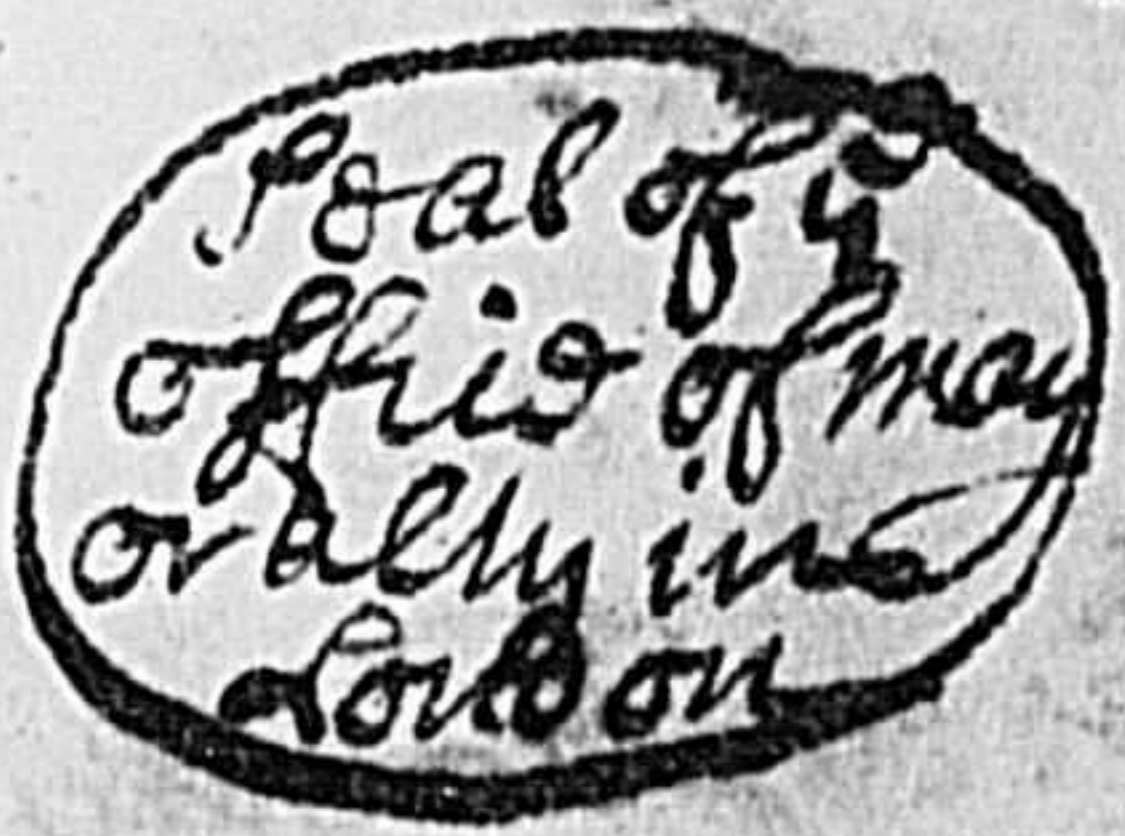 Seal of ye
office of may
oralty in
London